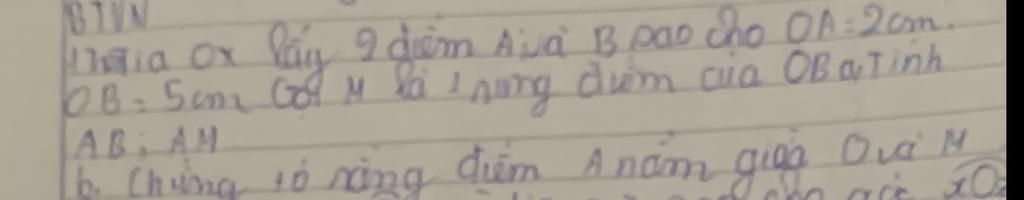 BTVN
tia Ox lấy 2 điểm A và B sao cho OA = 2cm.
OB = 5cm Gọi M là trung điểm của OB a, Tính
AB; AM
b. Chứng tỏ rằng điểm A nằm giữa O và M